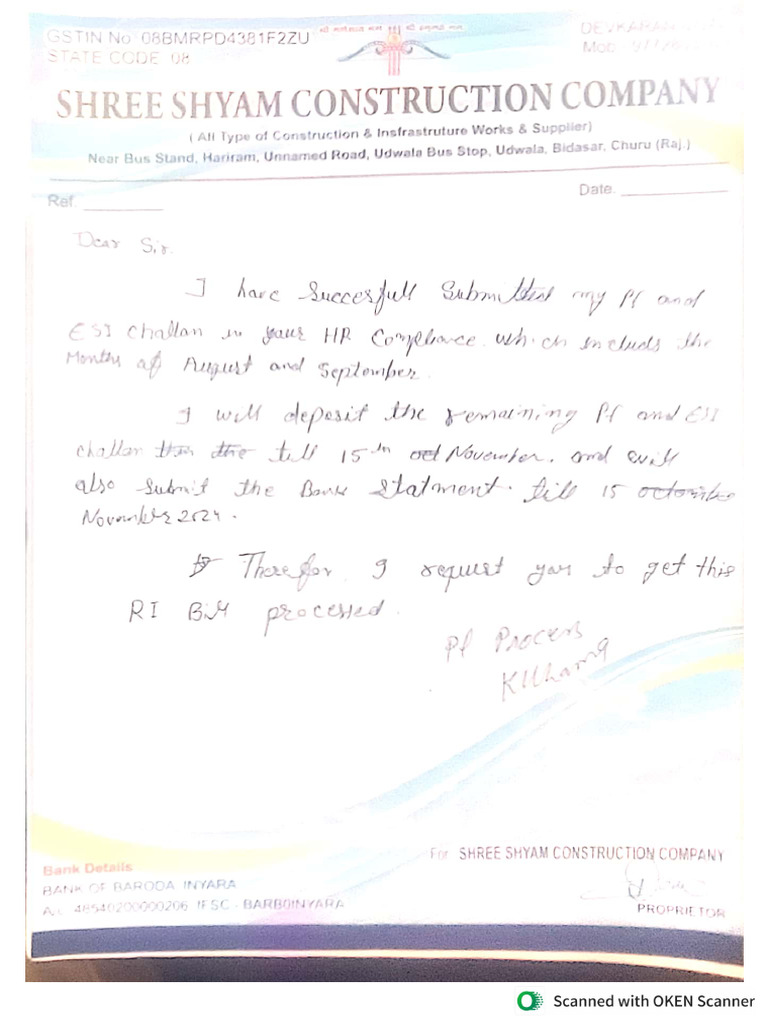 GSTIN No 08BMRPD4381F2ZU
STATE CODE 08
DEVKARAN
Mob.
SHREE SHYAM CONSTRUCTION COMPANY
( All Type of Construction & Insfrastruture Works & Supplier)
Near Bus Stand, Hariram, Unnamed Road, Udwala Bus Stop, Udwala, Bidasar, Churu (Raj.)
Ref.
Date.
Dear Sir.
I have Succesfull Submitted my Pf and
ESI challan in your HR Complience. which includs the
Months of August and September.
I will deposit the remaining Pf and ESI
challan till 15th oct November. and will
also submit the Bank Statment. till 15 octomber
November 2024.
Therefor I request you to get this
RI Bill processed.
Pl Process
For SHREE SHYAM CONSTRUCTION COMPANY
PROPRIETOR
Bank Details
BANK OF BARODA INYARA
A/c 48540200000206 IFSC - BARB0INYARA
Scanned with OKEN Scanner